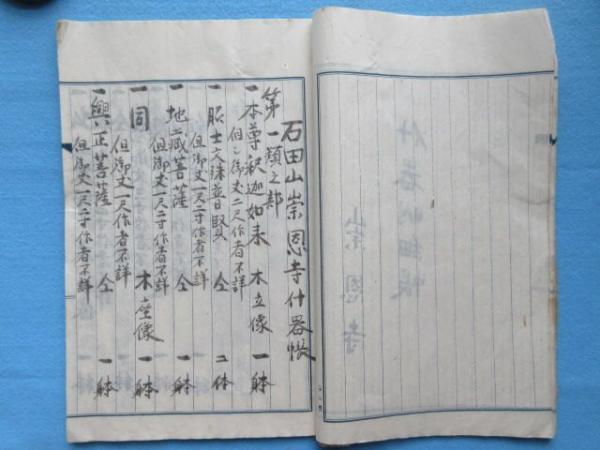 石田山崇恩寺什器帳
第一類之部
一本尊釈迦如来 木立像 一躰
但シ御丈二尺作者不詳
一 脇士文殊普賢 仝 二体
但御丈一尺二寸作者不詳
一地蔵菩薩 仝 一躰
但御丈一尺二寸作者不詳
一同 木座像 一躰
但御丈一尺作者不詳
一興正菩薩 仝 一躰
但御丈一尺二寸作者不詳
崇恩寺